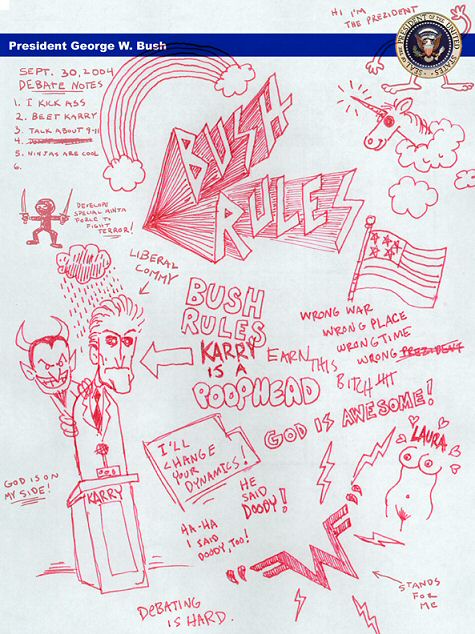 HI I'M
THE PREZIDENT
SEAL OF THE PRESIDENT OF THE UNITED STATES
President George W. Bush
SEPT. 30, 2004
DEBATE NOTES
1. I KICK ASS
2. BEET KARRY
3. TALK ABOUT 9-11
4.
5. NINJAS ARE COOL
6.
BUSH
RULES
DEVELOPE
SPECIAL NINJA
FORCE TO
FIGHT
TERROR!
LIBERAL
COMMY
BUSH
RULES
KARRY
IS A
POOPHEAD
WRONG WAR
WRONG PLACE
WRONG TIME
WRONG PREZIDENT
EARN THIS
BITCH!!!
GOD IS AWESOME!
LAURA
I'LL
CHANGE
YOUR
DYNAMICS!
GOD IS ON
MY SIDE!
KARRY
HE
SAID
DOODY!
HA-HA
I SAID
DOODY, TOO!
"W"
STANDS
FOR
ME
DEBATING
IS HARD.